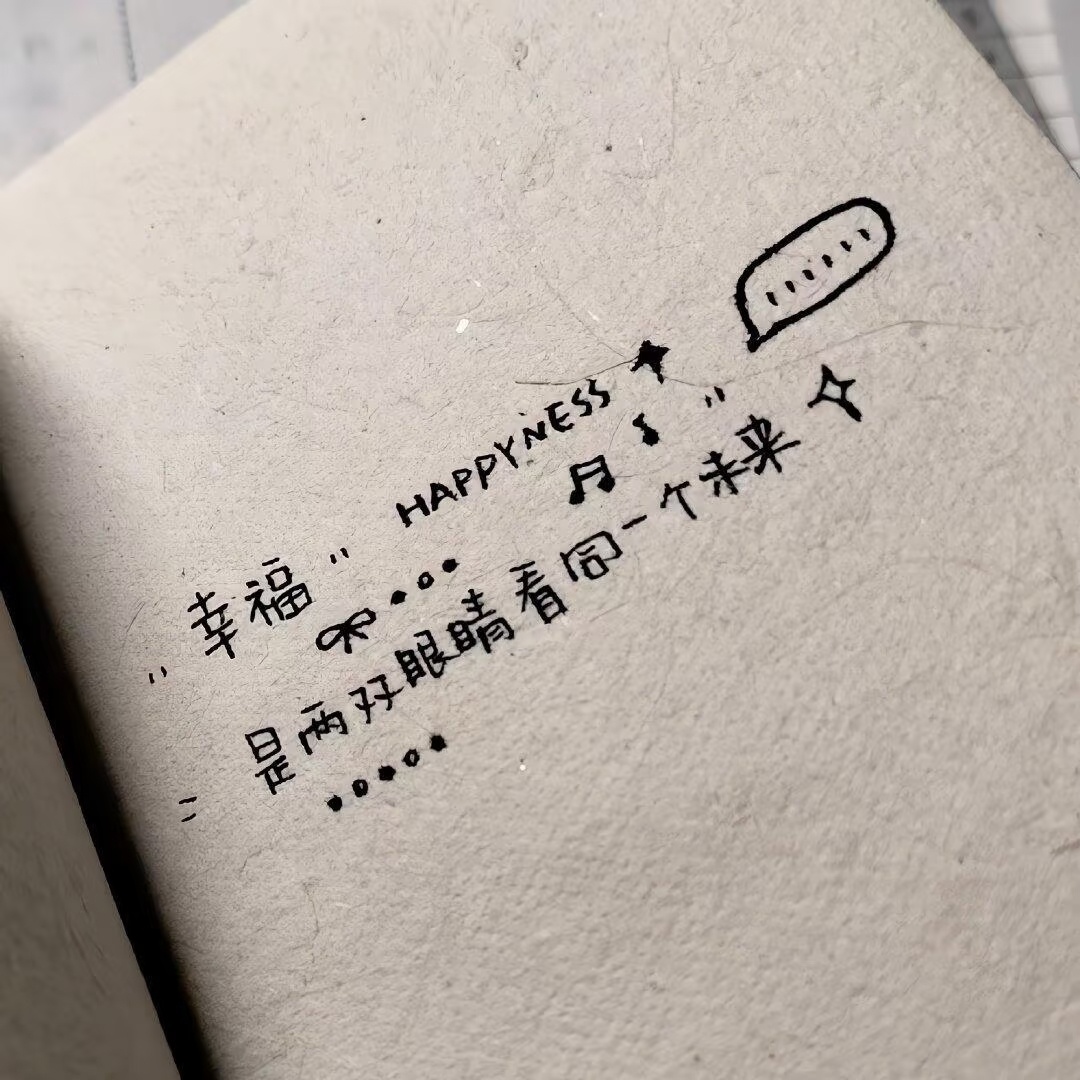 HAPPYNESS
"幸福"
是两双眼睛看同一个未来